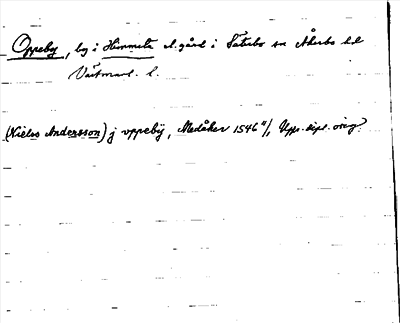 Oppeby, by i Himmeta el. gård i Säterbo sn Åkerbo hd
Västmanl. l.
(Nielss Andersson) j oppebÿ, Medåker 1546 4/1, Upps. dipl. orig.